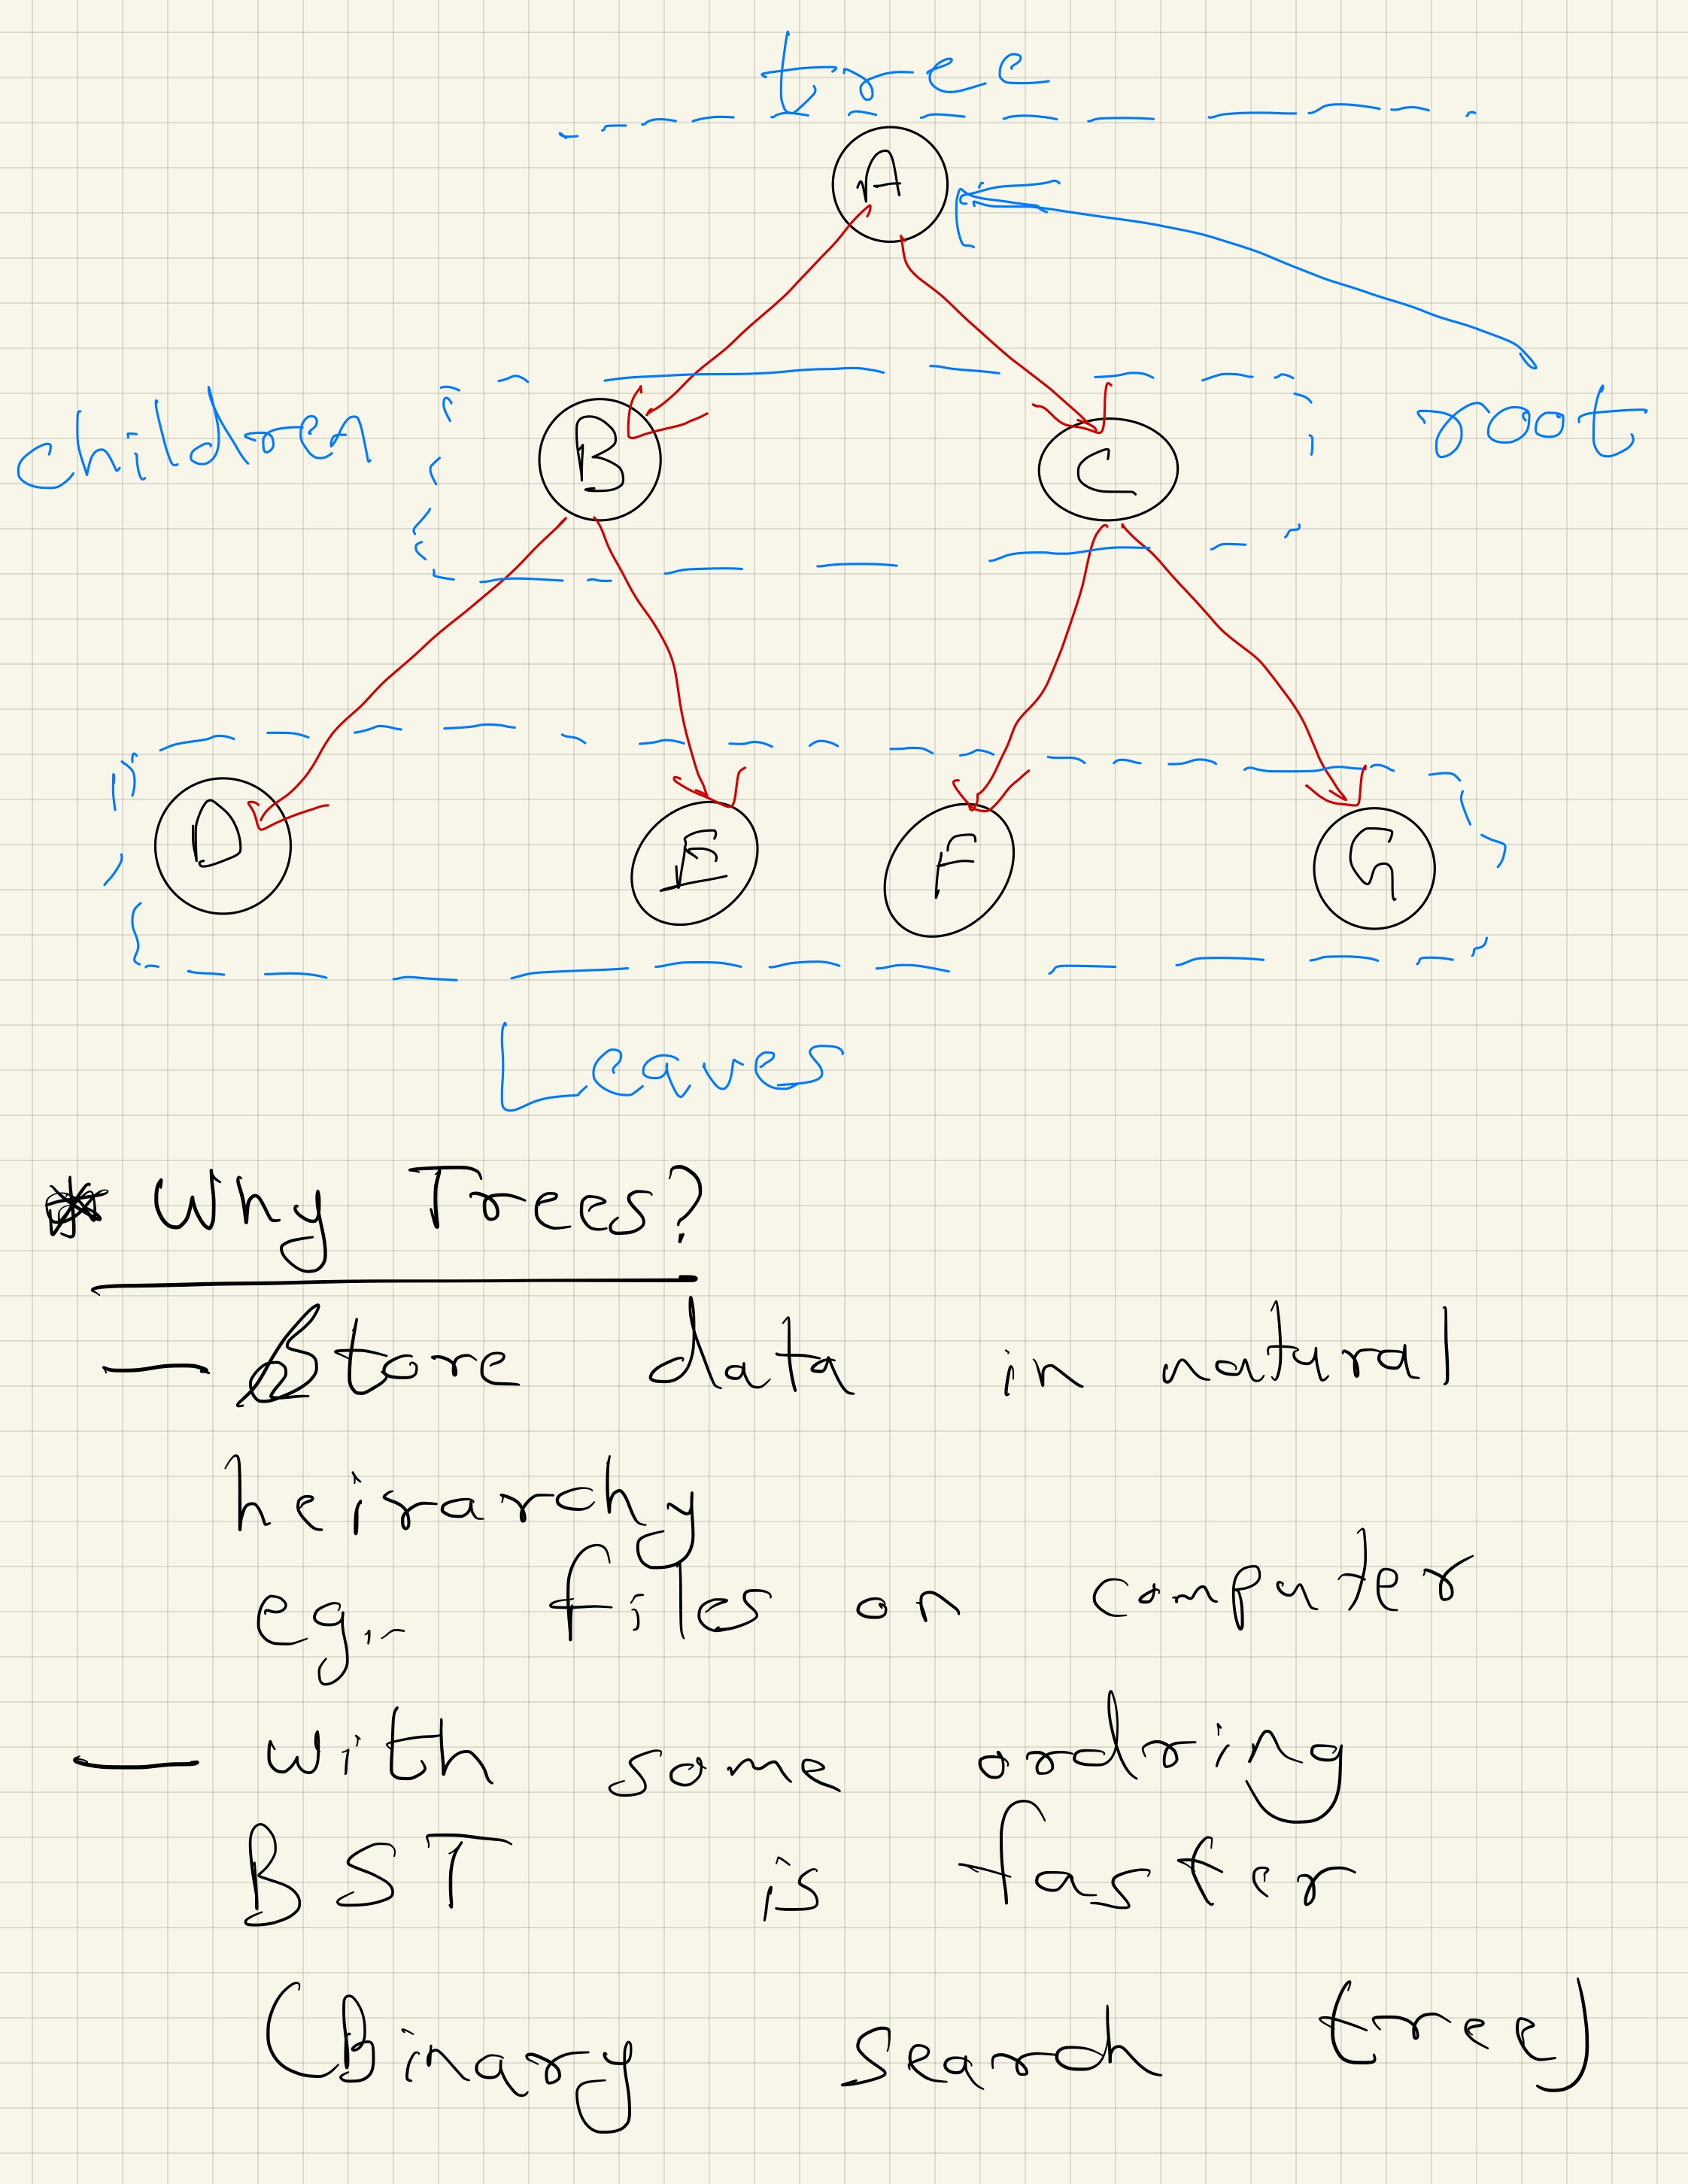 tree
A
children
B
C
root
D
E
F
G
Leaves
* Why Trees?
— Store data in natural
heirarchy
eg,- files on computer
— with some ordring
BST is faster
(Binary search tree)